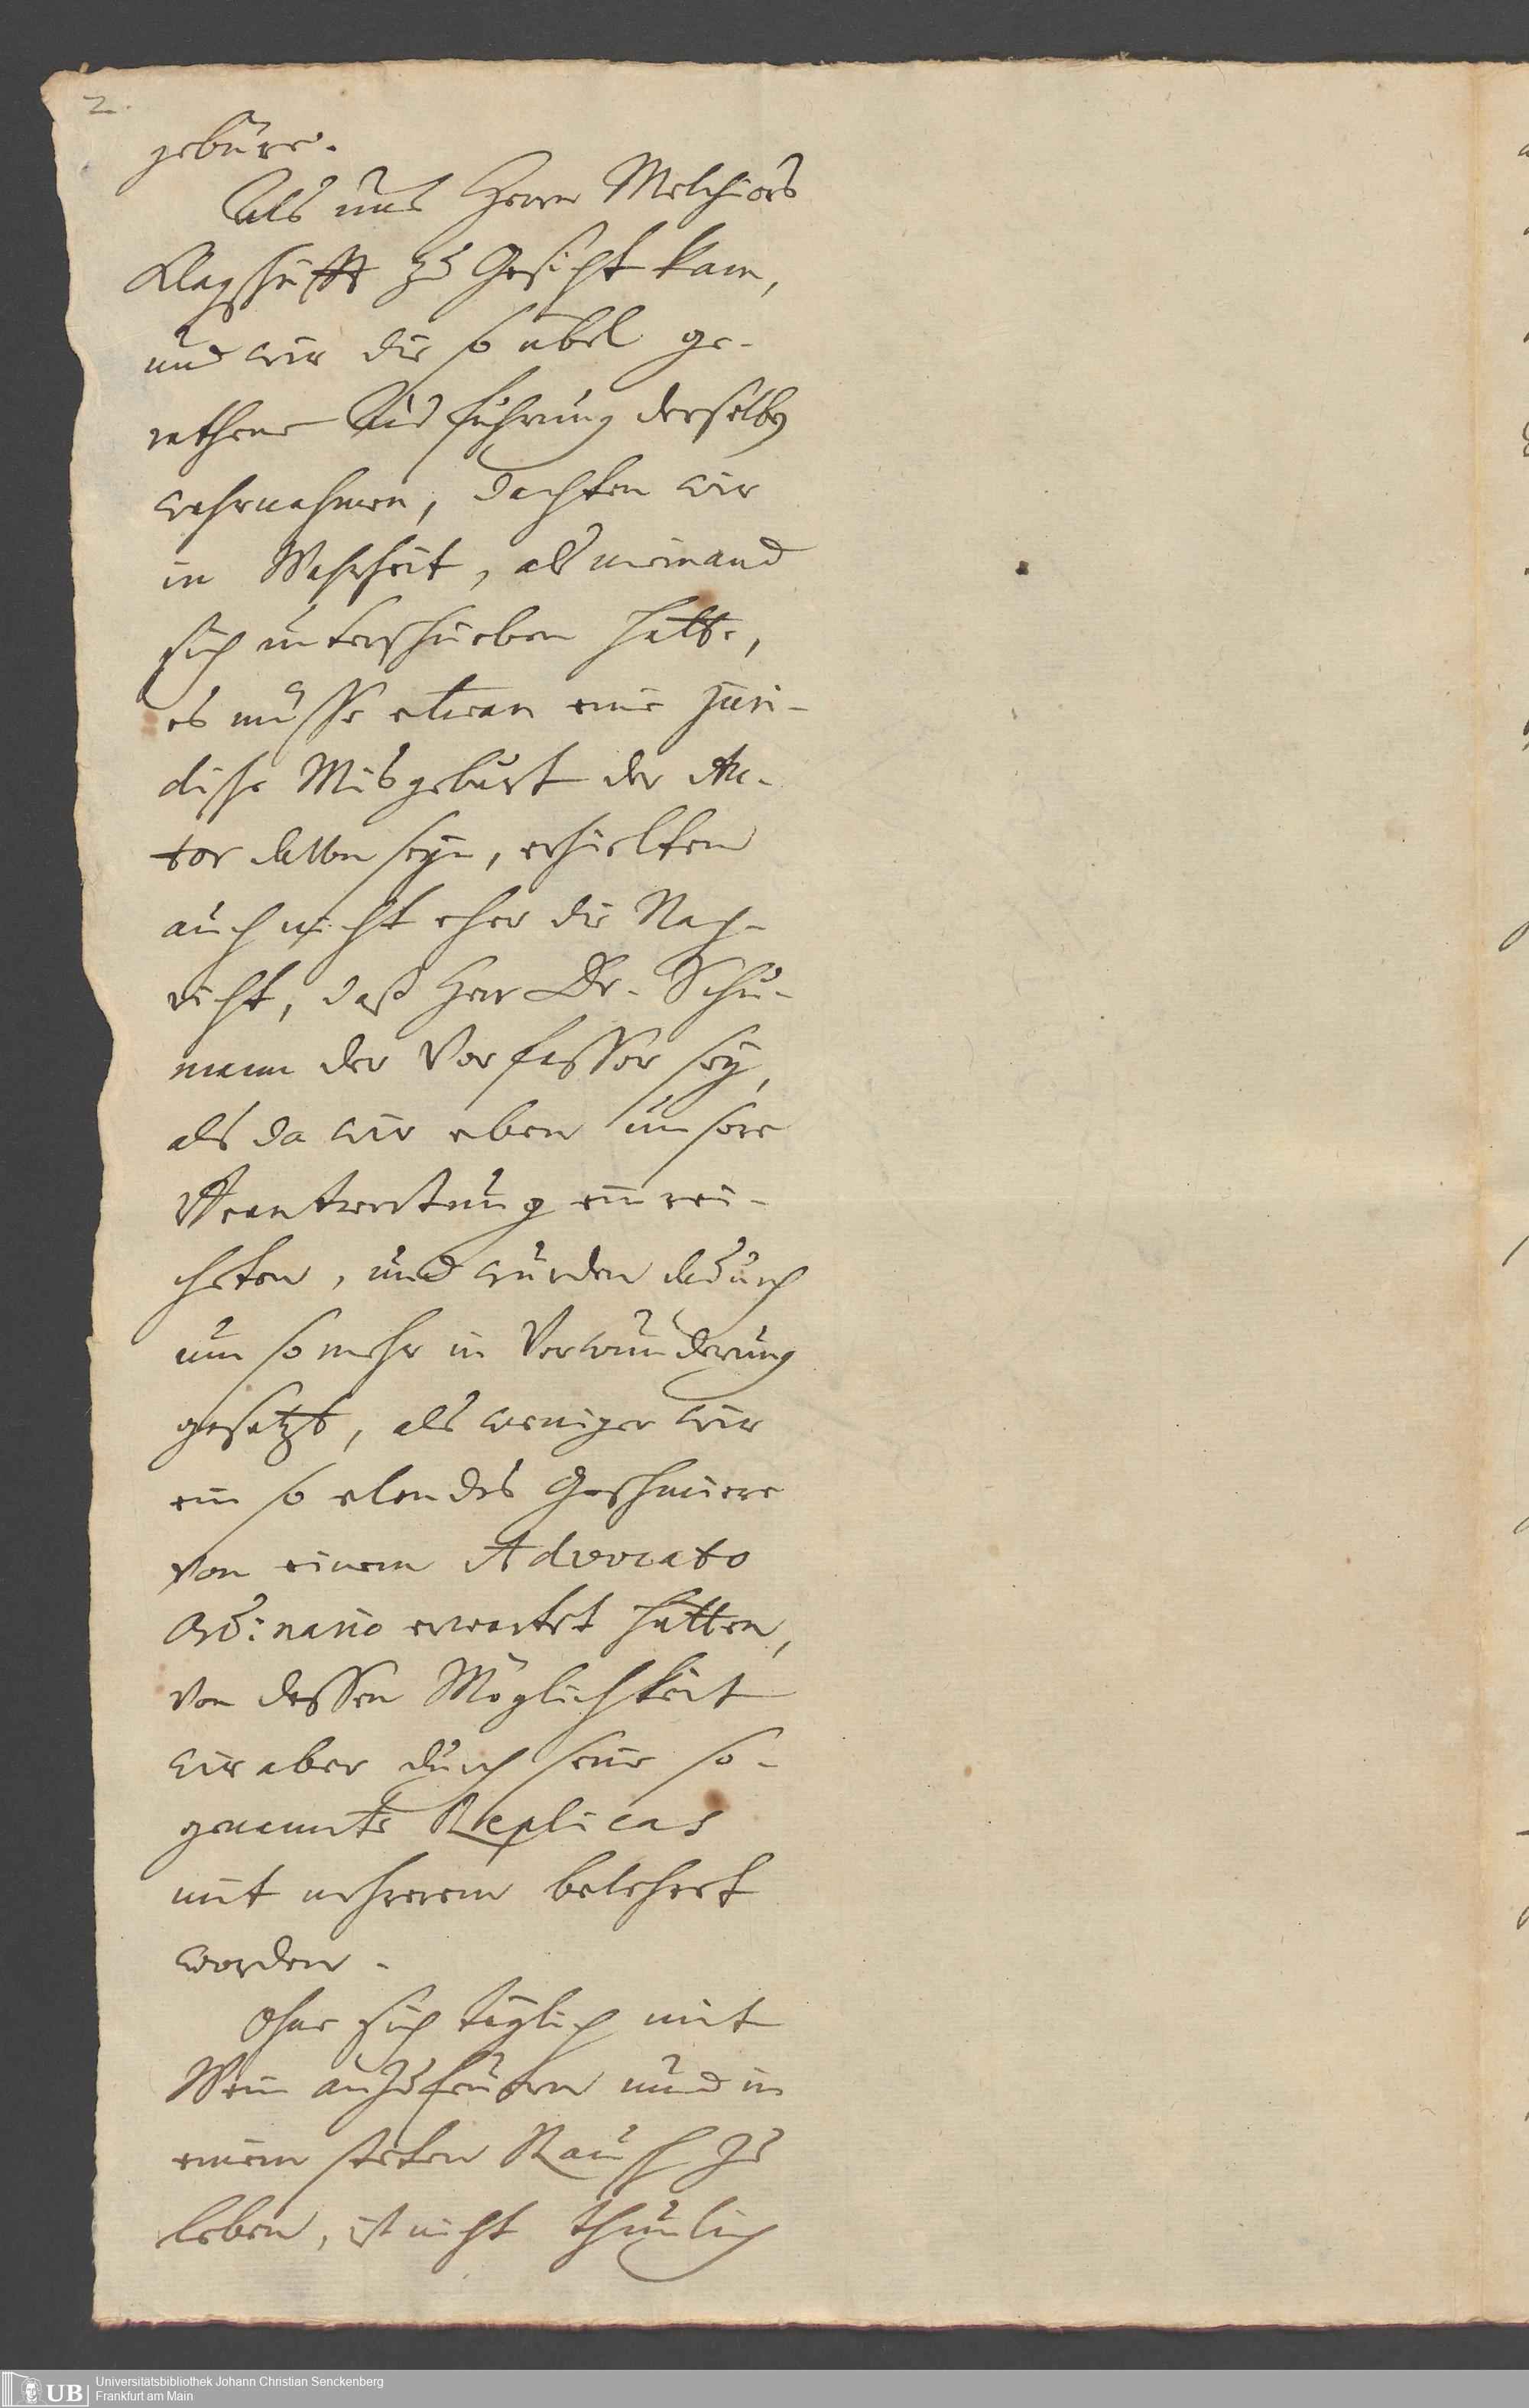 2.
gebüre.
Als uns Herrn Melchiors
Klagschrifft zu Gesicht kam,
und wir die so übel ge-
rathene Ausführung derselben
wahrnahmen, dachten wir
in Wahrheit, als niemand
sich unterschrieben hatte,
es müsse etwan eine juri-
dische Misgeburt der Ac-
tor selbsten seyn, erhielten
auch nicht eher die Nach-
richt, daß Herr Dr. Schu-
mann der Verfasser sey,
als da wir eben unsere
Verantwortung einrei-
cheten, und wurden dadurch
um so mehr in Verwunderung
gesetzt, als weniger wir
ein so elendes Geschmiere
von einem Advocato
Ordinario erwartet hatten,
von dessen Möglichkeit
wir aber durch seine so-
genannte Replicas
mit mehrerem belehret
worden.
Ohne sich täglich mit
Wein anzufeuchten und in
einem steten Rausch zu
leben, ist nicht thunlich
UB
Universitätsbibliothek Johann Christian Senckenberg
Frankfurt am Main